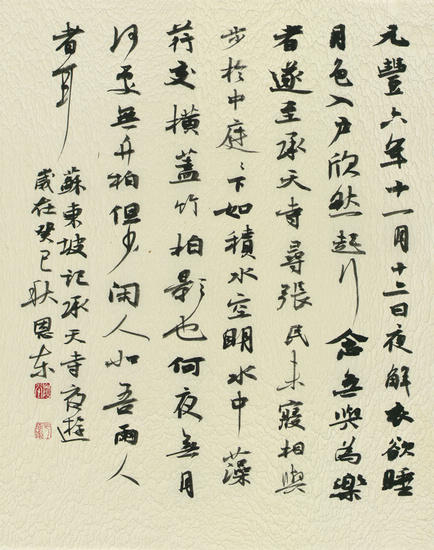 元豐六年十一月十二日夜解衣欲睡
月色入户欣然起行念无與為樂
者遂至承天寺尋張民未寢相與
步於中庭〻下如積水空明水中藻
荇交橫蓋竹柏影也何夜無月
何處無竹柏但少閑人如吾兩人
者耳
蘇東坡記承天寺夜遊
歲在癸巳恩东